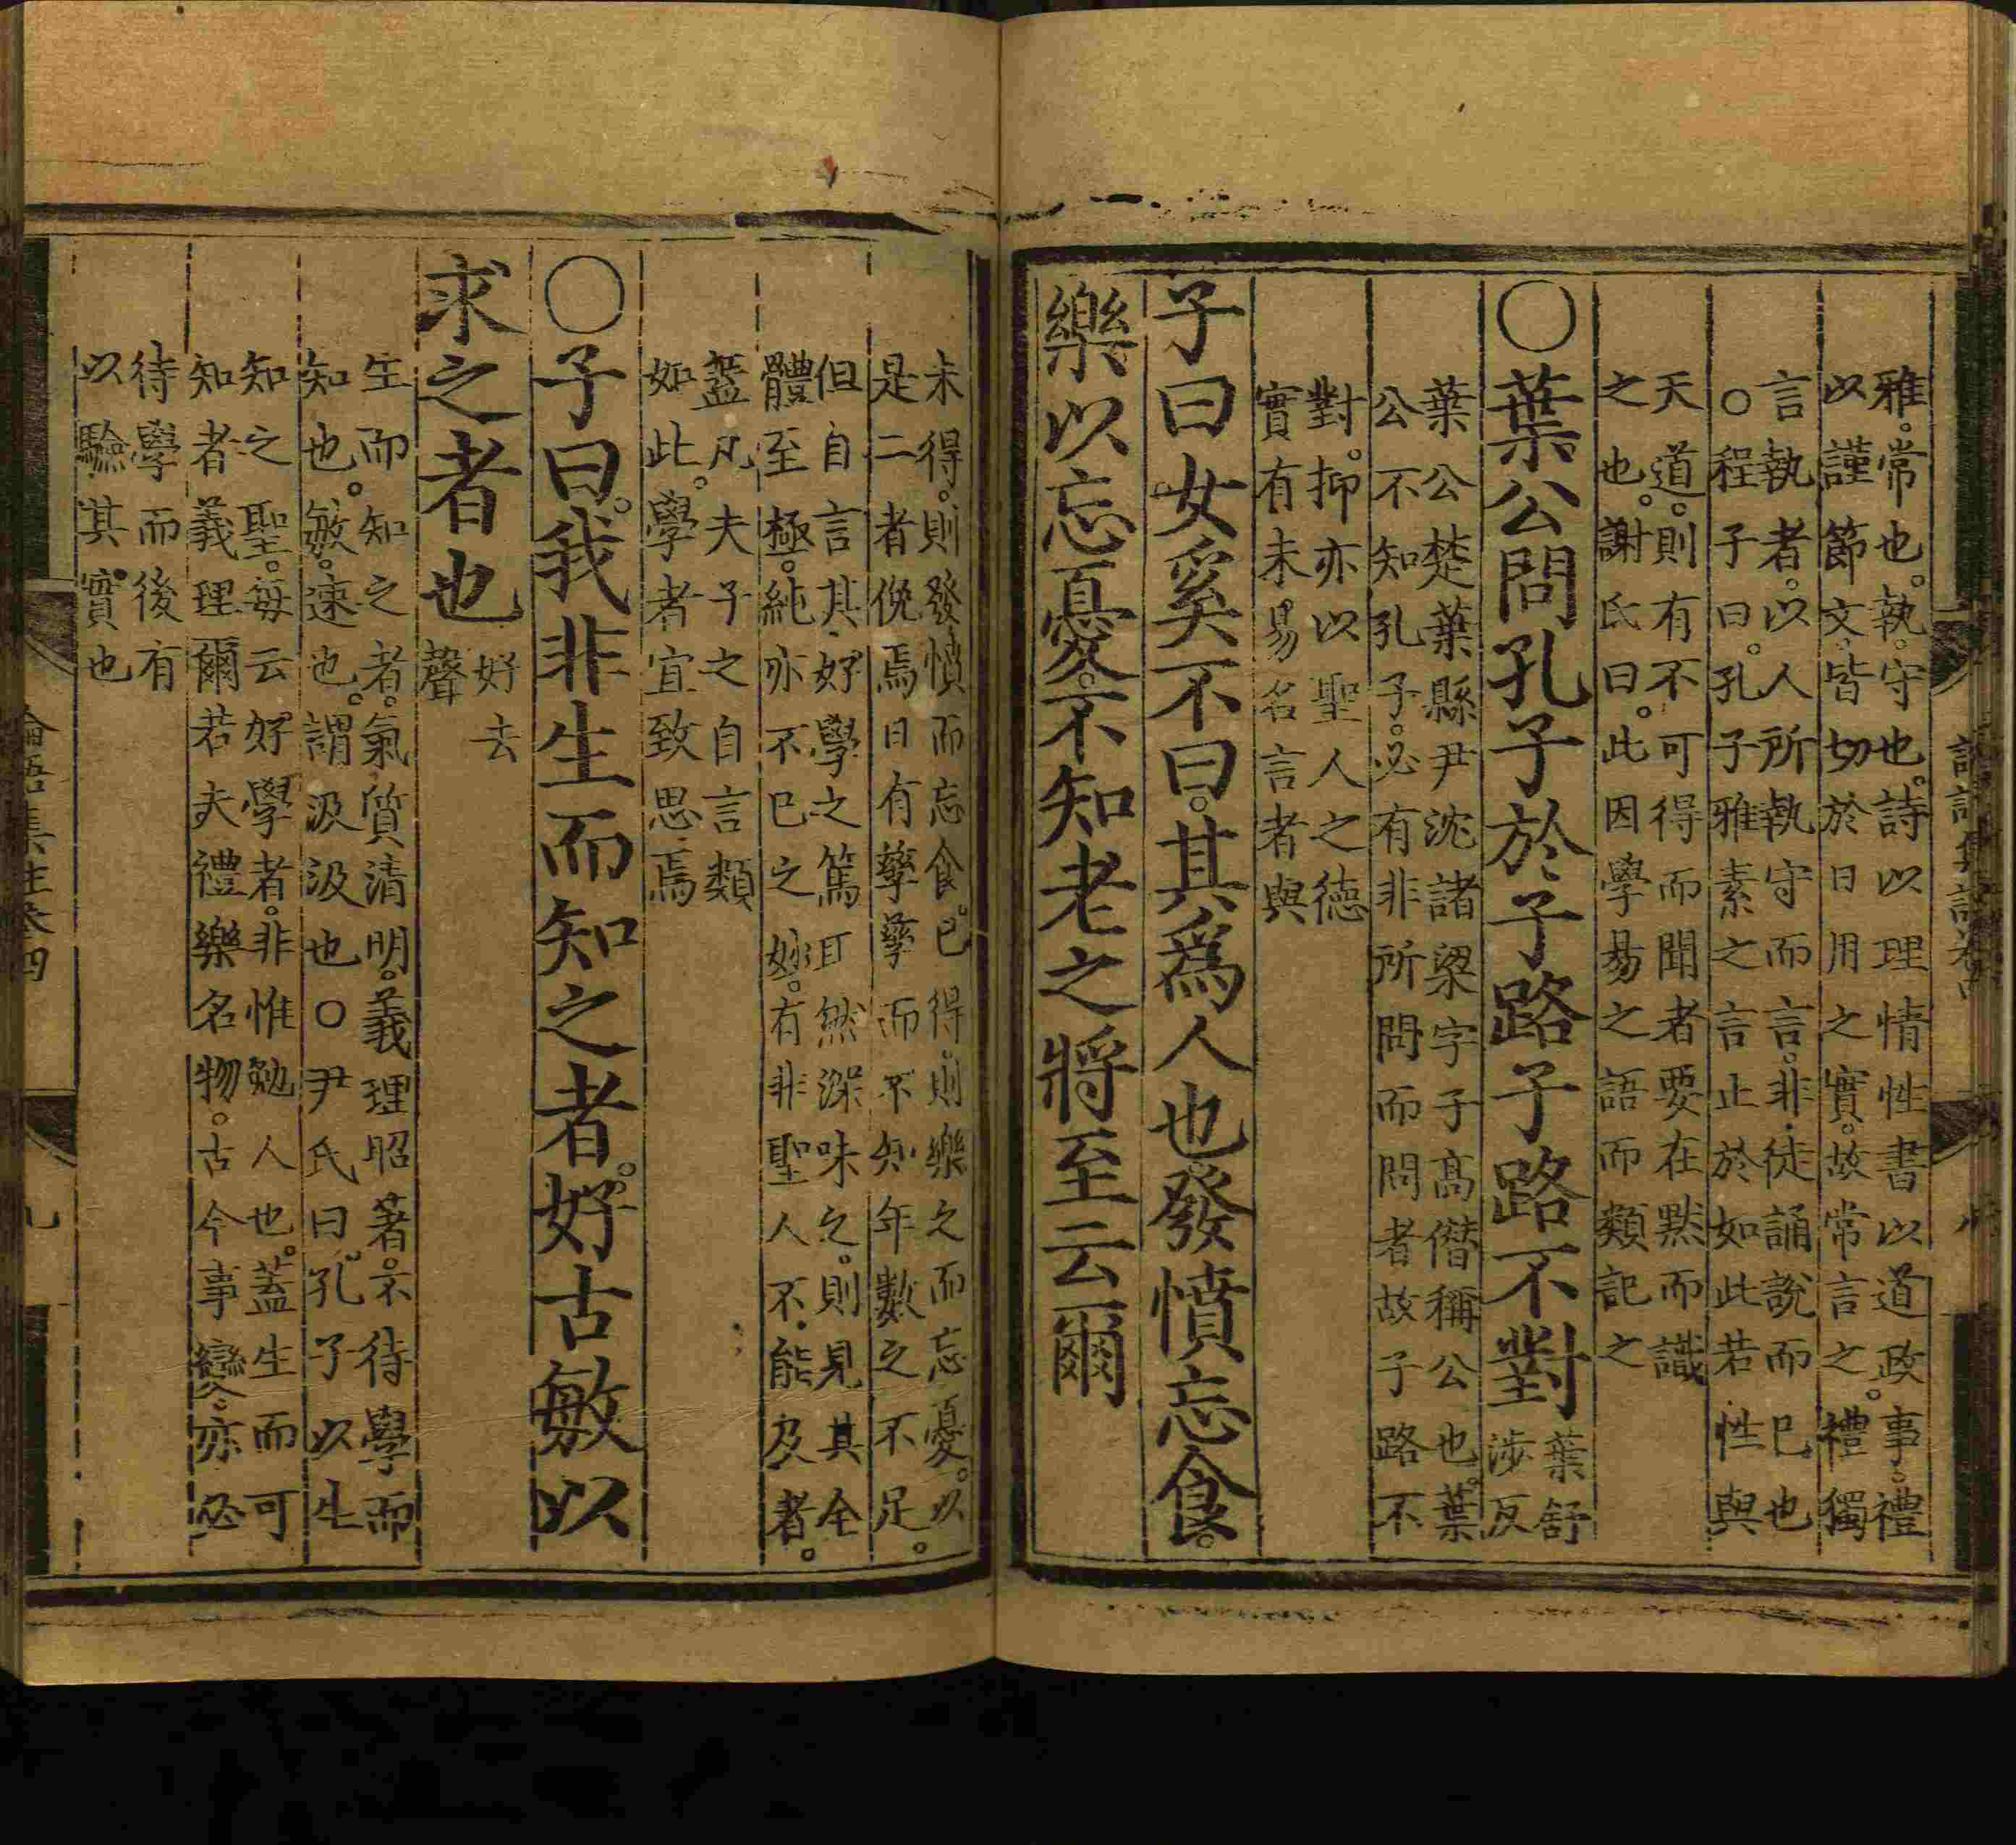 雅。常也。執。守也。詩以理情性書以道政事。禮
以謹節文。皆切於日用之實。故常言之。禮獨
言執者。以人所執守而言。非徒誦說而已也
○程子曰。孔子雅素之言止於如此若性與
天道。則有不可得而聞者要在默而識
之也。謝氏曰。此因學易之語而類記之
○葉公問孔子於子路子路不對
葉舒
涉反
葉公楚葉縣尹沈諸梁字子高僭稱公也。葉
公不知孔子。必有非所問而問者故子路不
對。抑亦以聖人之德
實有未易名言者與
子曰女奚不曰。其爲人也。發憤忘食。
樂以忘憂。不知老之將至云爾
未得。則發憤而忘食。已得。則樂之而忘憂。以
是二者俛焉日有孳孳而不知年數之不足。
但自言其好學之篤耳然深味之。則見其全
體至極。純亦不已之妙。有非聖人不能及者。
蓋凡夫子之自言類
如此。學者宜致思焉
○子曰。我非生而知之者。好古敏以
求之者也
好去
聲
生而知之者。氣質清明。義理昭著。不待學而
知也。敏。速也。謂汲汲也○尹氏曰。孔子以生
知之聖。每云好學者。非惟勉人也。蓋生而可
知者義理爾若夫禮樂名物。古今事變。亦必
待學而後有
以驗其實也
論語集註卷四